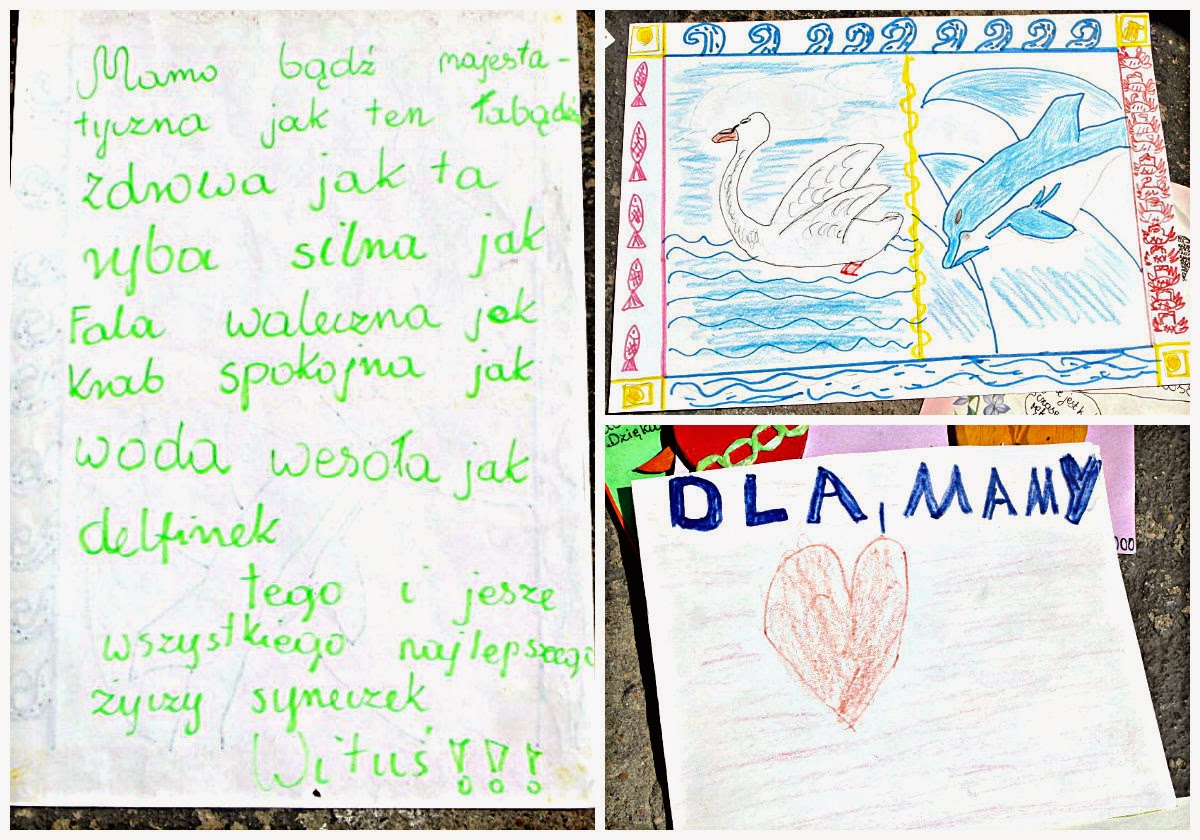 Mamo bądź majesta-
tyczna jak ten łabądź
zdrowa jak ta
ryba silna jak
Fala waleczna jak
Krab spokojna jak
woda wesoła jak
delfinek
tego i jeszę
wszystkiego najlepszego
życzy syneczek
Wituś!!!
Dzięku
jest
DLA, MAMY